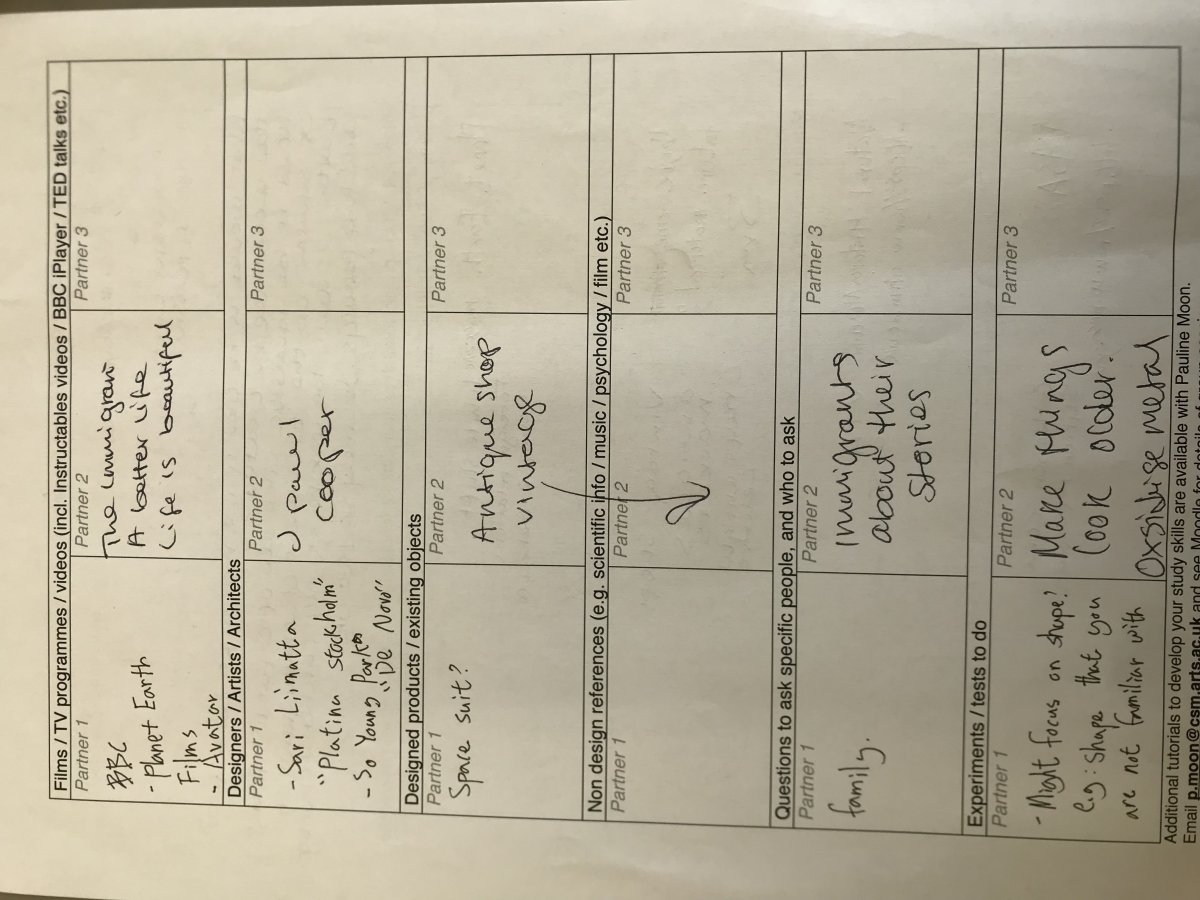 Films / TV programmes / videos (incl. Instructables videos / BBC iPlayer / TED talks etc.)
Partner 1
BBC
- Planet Earth
Films
- Avatar
Partner 2
The Immigrant
A better life
Life is beautiful
Partner 3
Designers / Artists / Architects
Partner 1
- Sari Liimatta
"Platina stockholm"
- So Young Park
"De Novo"
Partner 2
J paul
cooper
Partner 3
Designed products / existing objects
Partner 1
Space suit?
Partner 2
Antique shop
vintage
Partner 3
Non design references (e.g. scientific info / music / psychology / film etc.)
Partner 1
Partner 2
Partner 3
Questions to ask specific people, and who to ask
Partner 1
family.
Partner 2
immigrants
about their
stories
Partner 3
Experiments / tests to do
Partner 1
- Might focus on shape?
eg: shape that you
are not familiar with
Partner 2
Make things
look older.
Oxsidise metal
Partner 3
Additional tutorials to develop your study skills are available with Pauline Moon.
Email p.moon@csm.arts.ac.uk and see Moodle for details of